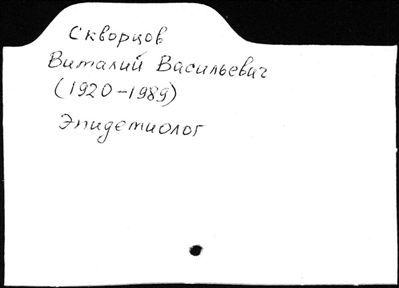 Скворцов
Виталий Васильевич
(1920-1989)
Эпидемиолог